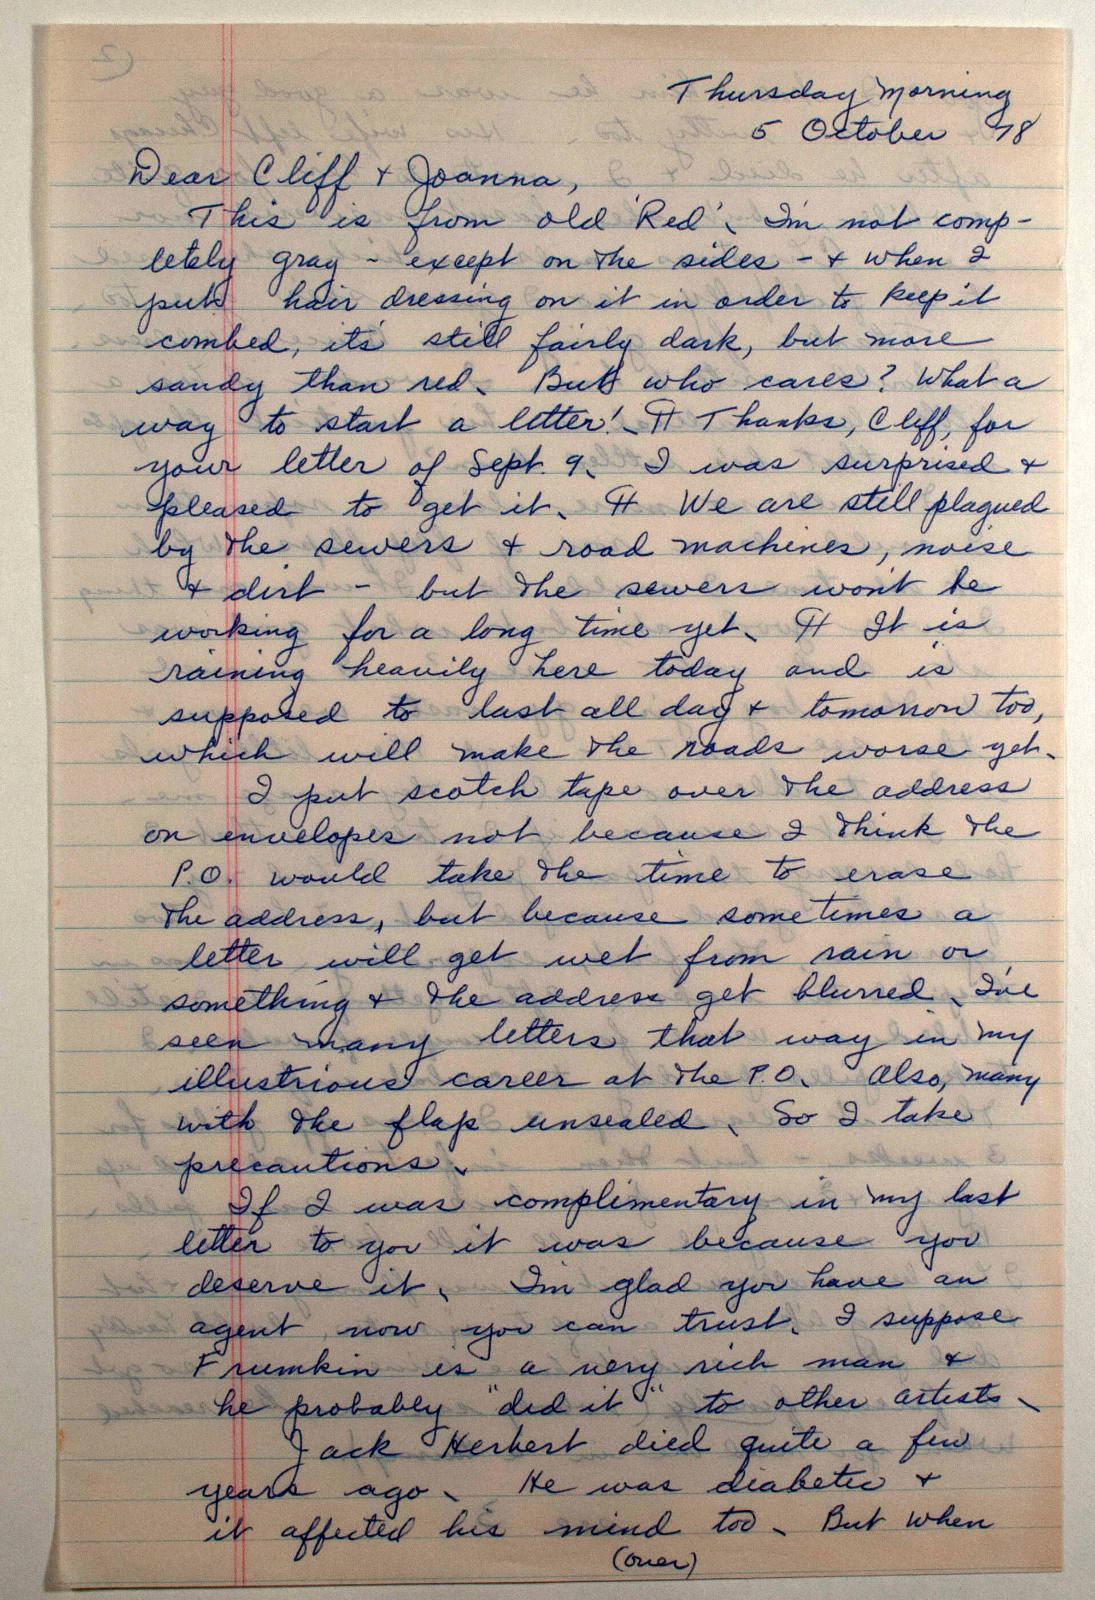 Thursday Morning
5 October '78
Dear Cliff + Joanna,
This is from old 'Red'. I'm not comp-
letely gray - except on the sides - + when I
put hair dressing on it in order to keep it
combed, it's still fairly dark, but more
sandy than red. But who cares? What a
way to start a letter! ¶ Thanks, Cliff, for
your letter of Sept. 9. I was surprised +
pleased to get it. ¶ We are still plagued
by the sewers + road machines, noise
+ dirt - but the sewers won't be
working for a long time yet. ¶ It is
raining heavily here today and is
supposed to last all day + tomorrow too,
which will make the roads worse yet.
I put scotch tape over the address
on envelopes not because I think the
P.O. would take the time to erase
the address, but because sometimes a
letter will get wet from rain or
something + the address get blurred. I've
seen many letters that way in my
illustrious career at the P.O. Also, many
with the flap unsealed. So I take
precautions.
If I was complimentary in my last
letter to you it was because you
deserve it. I'm glad you have an
agent now you can trust. I suppose
Frumkin is a very rich man +
he probably "did it" to other artists.
Jack Herbert died quite a few
years ago. He was diabetic +
it affected his mind too. But when
(over)